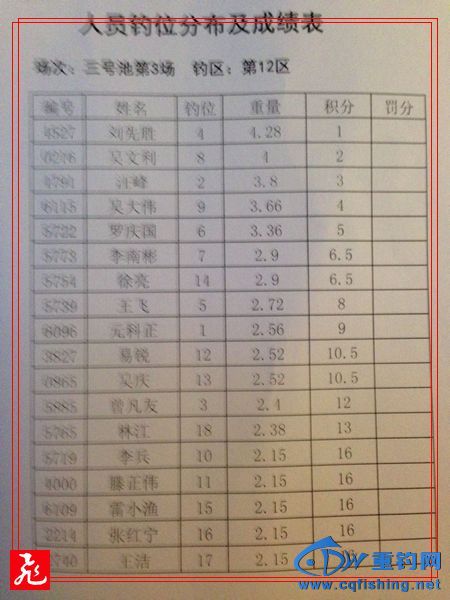 人员钓位分布及成绩表
场次：三号池第3场 钓区：第12区
编号 姓名 钓位 重量 积分 罚分
4827 刘先胜 4 4.28 1
0216 吴文利 8 4 2
4791 汪峰 2 3.8 3
6115 吴大伟 9 3.66 4
5722 罗庆国 6 3.36 5
5773 李南彬 7 2.9 6.5
5754 徐亮 14 2.9 6.5
5739 王飞 5 2.72 8
6096 元科正 1 2.56 9
3827 易锐 12 2.52 10.5
0865 吴庆 13 2.52 10.5
5885 曾凡友 3 2.4 12
5765 林江 18 2.38 13
5719 李兵 10 2.15 16
4000 滕正伟 11 2.15 16
6109 雷小渔 15 2.15 16
2214 张红宁 16 2.15 16
5740 王洁 17 2.15 16
重钓网
www.cqfishing.net